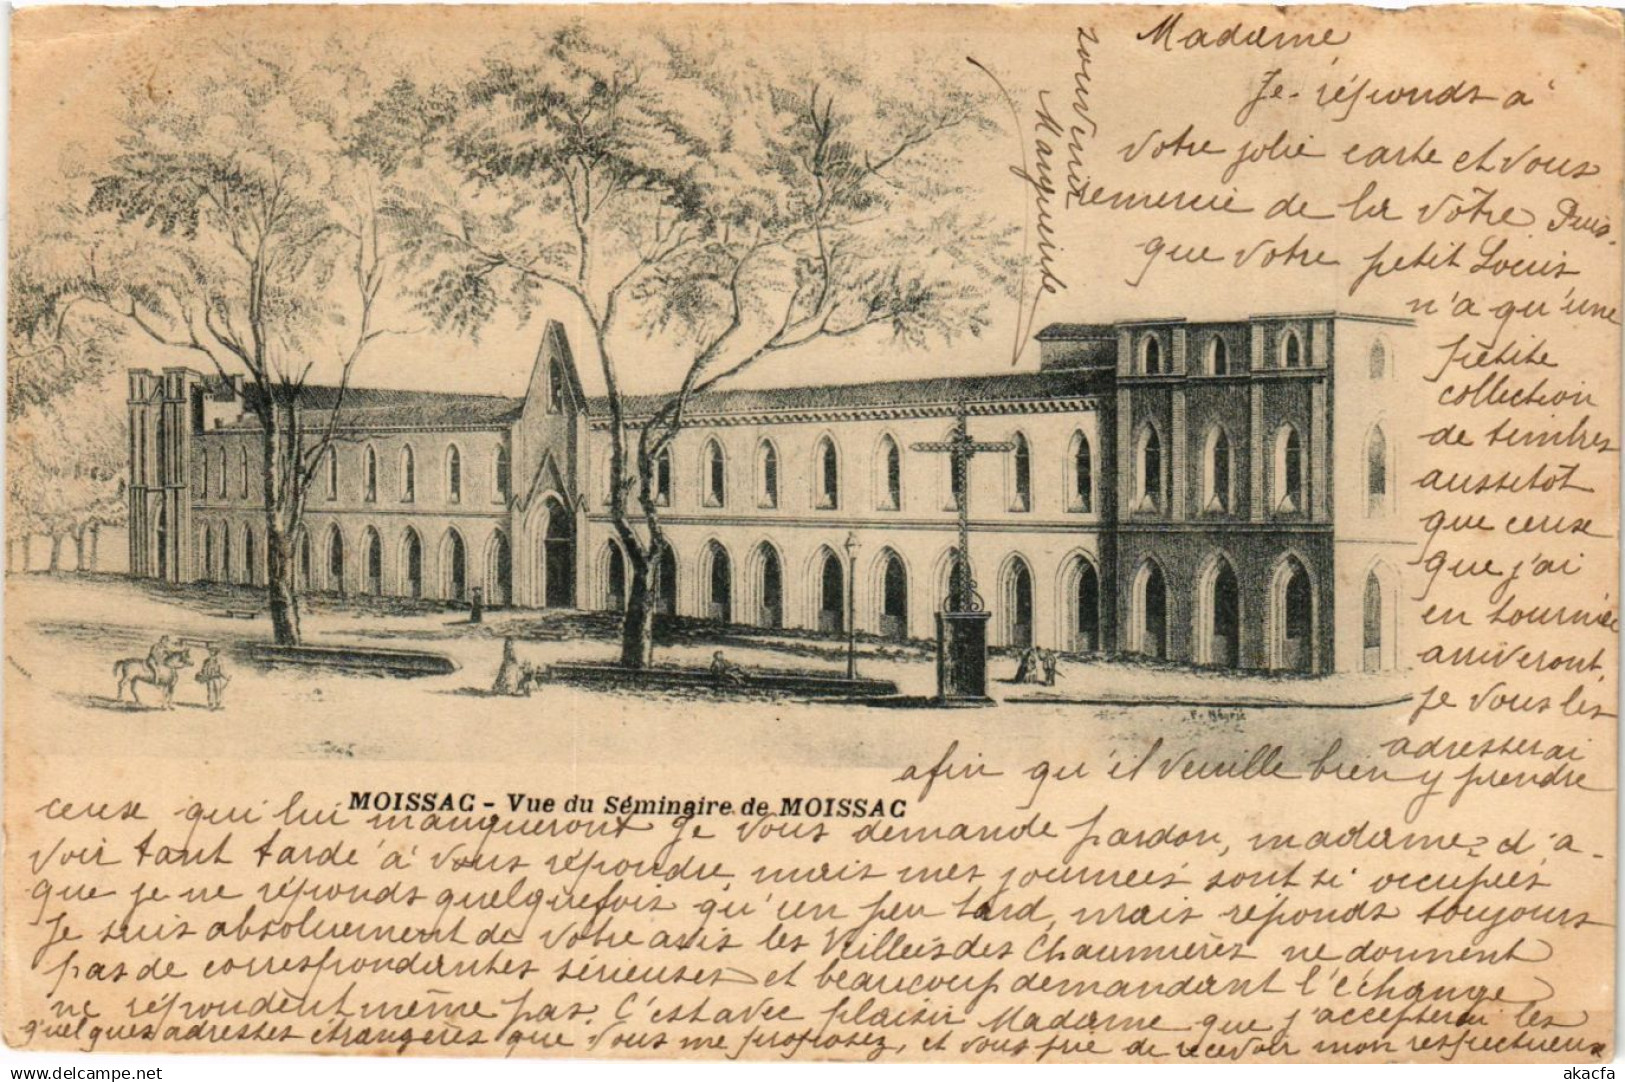 Madame
Je réponds à
votre jolie carte et vous
remercie de la vôtre Puis-
que votre petit Louis
n'a qu'une
petite
collection
de timbres
aussitôt
que ceux
que j'ai
en tournée
arriveront,
je vous les
adresserai
afin qu'il veuille bien y prendre
ceux qui lui manqueront Je vous demande pardon, madame, d'a-
voir tant tardé à vous répondre, mais mes journées sont si occupées
que je ne réponds quelquefois qu'un peu tard, mais réponds toujours
Je suis absolument de votre avis les Veillées des Chaumières ne donnent
pas de correspondantes sérieuses et beaucoup demandant l'échange
ne répondent même pas. C'est avec plaisir Madame que j'accepterai les
quelques adresses étrangères que vous me proposez, et vous prie de recevoir mon respectueux
souvenir
Marguerite
MOISSAC - Vue du Séminaire de MOISSAC
delcampe.net
akacfa